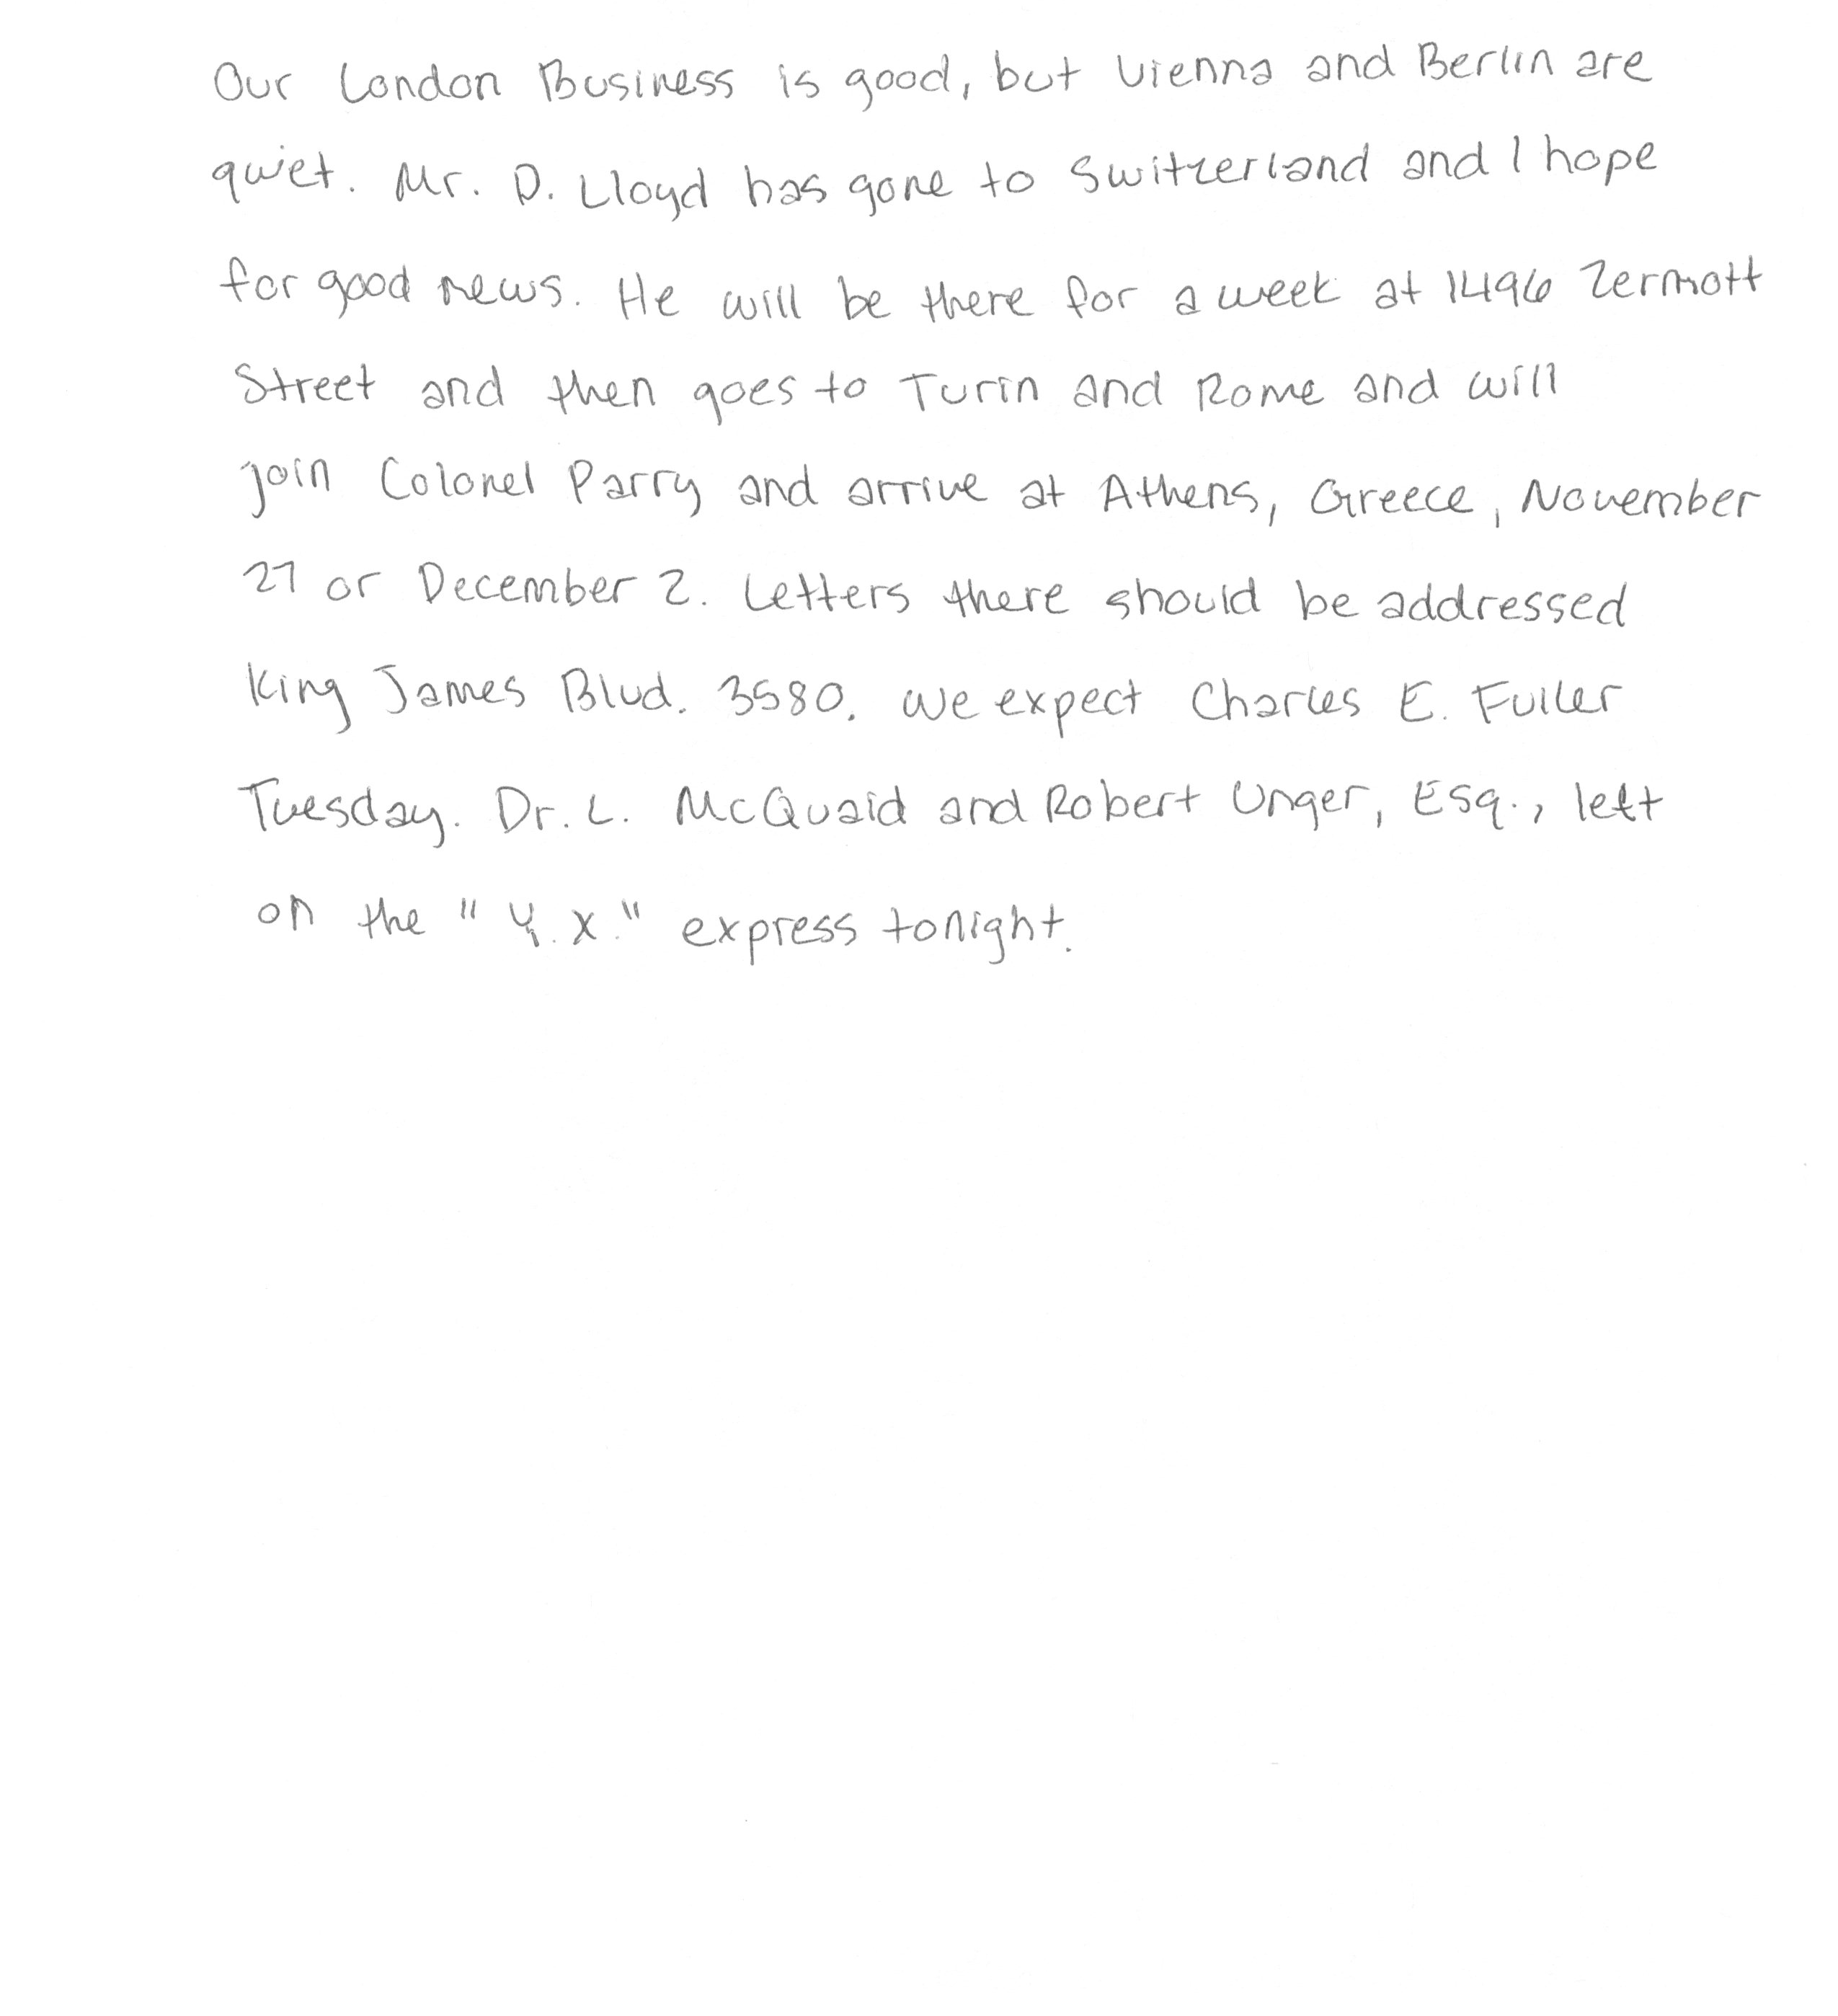 Our London Business is good, but Vienna and Berlin are
quiet. Mr. D. Lloyd has gone to Switzerland and I hope
for good news. He will be there for a week at 1496 Zermott
Street and then goes to Turin and Rome and will
join Colonel Parry and arrive at Athens, Greece, November
27 or December 2. Letters there should be addressed
King James Blvd. 3580. We expect Charles E. Fuller
Tuesday. Dr. L. McQuaid and Robert Unger, Esq., left
on the "Y.X." express tonight.